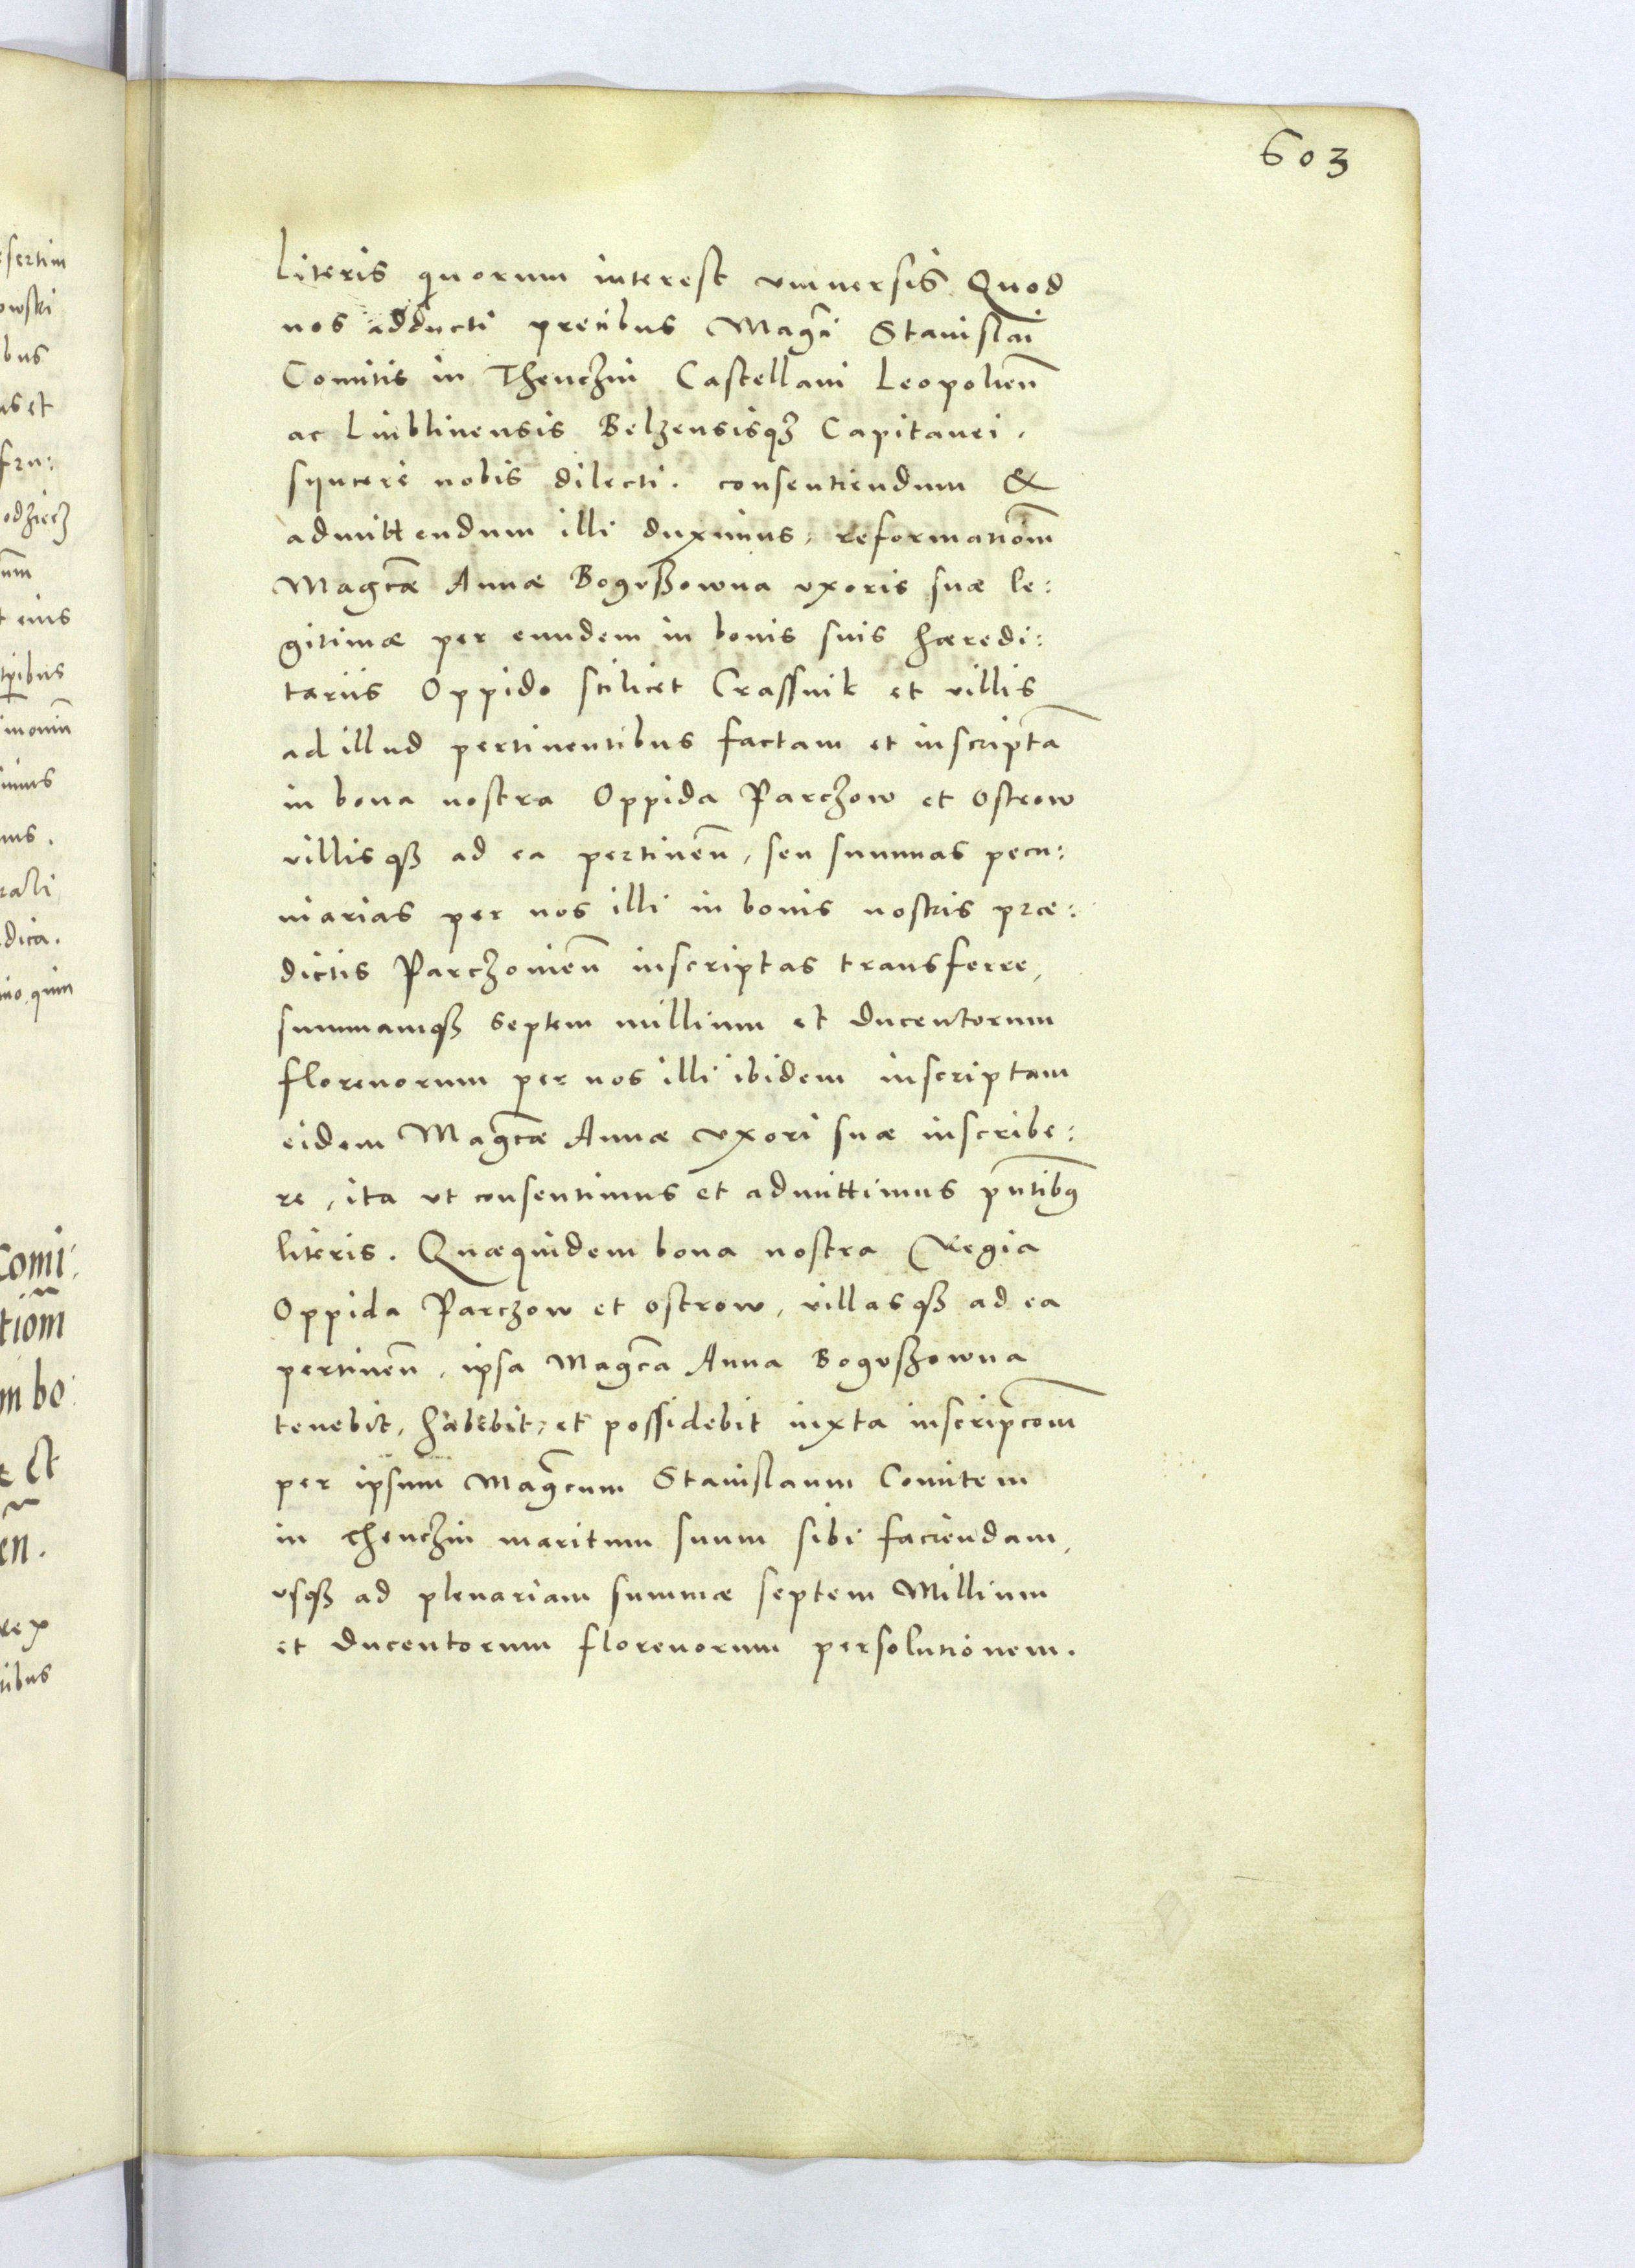 603
literis quorum interest vniuersis Quod
nos adducti precibus Magci Stanislai
Comitis in Thenczin Castellani Leopolien̄
ac Lublinensis Belzensisqʒ Capitanei.
syncere nobis dilecti. consentiendum &
admittendum illi duximus, reformatiōm
Magcæ Annæ Bogvßowna vxoris suæ le:
gitimæ per eundem in bonis suis hæredi:
tariis Oppido scilicet Crassnik et villis
ad illud pertinentibus factam et inscriptā
in bona nostra Oppida Parczow et Ostrow
villisqʒ ad ea pertinen̄, seu summas pecu:
niarias per nos illi in bonis nostris præ:
dictis Parczouien̄ inscriptas transferre,
summamqʒ septem millium et ducentorum
florenorum per nos illi ibidem inscriptam
eidem Magcæ Annæ vxori suæ inscribe:
re, ita vt consentimus et admittimus pn̄tibus
literis. Quæquidem bona nostra Regia
Oppida Parczow et Ostrow, villasqʒ ad ea
pertinen̄, ipsa Magca Anna Bogvßowna
tenebit, habebit, et possidebit iuxta inscripcōm
per ipsum Magcum Stanislaum Comitem
in Thenczin maritum suum sibi faciendam,
vsqʒ ad plenariam summæ septem Millium
et ducentorum florenorum persolutionem.